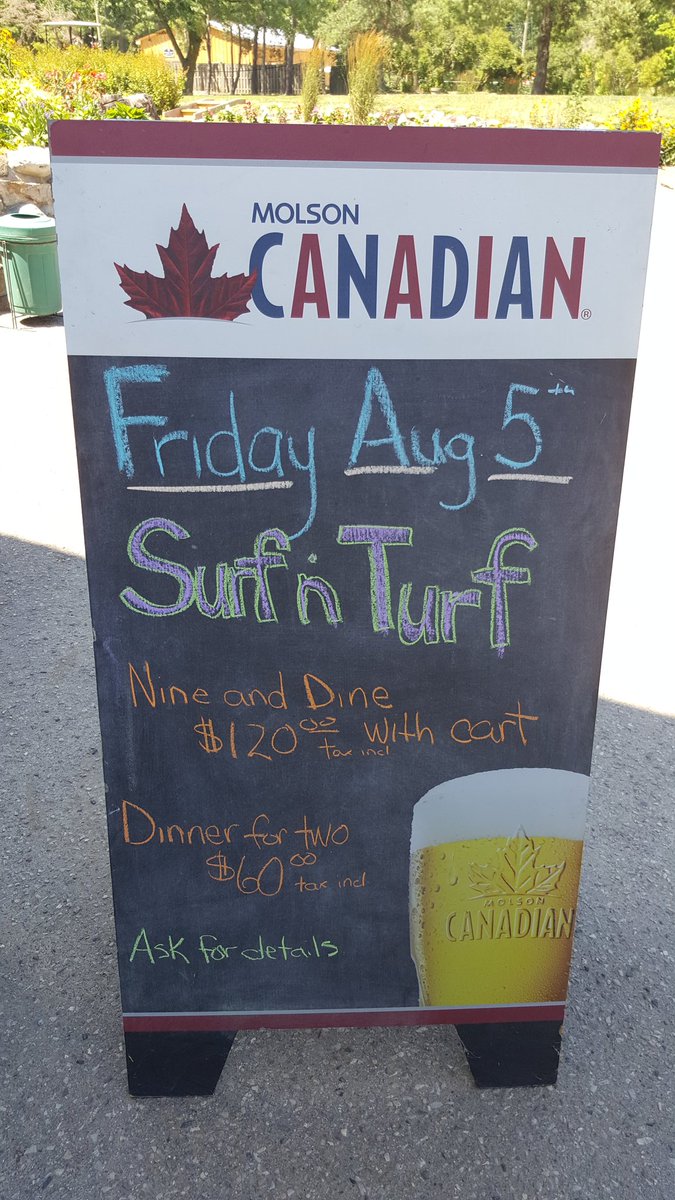 MOLSON
CANADIAN®
Friday Aug 5th
Surf 'n Turf
Nine and Dine
$120.00 tax incl with cart
Dinner for two
$60.00 tax incl
Ask for details
MOLSON
CANADIAN